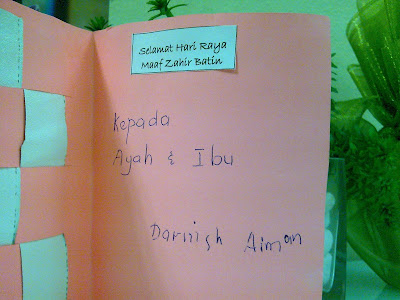 Selamat Hari Raya
Maaf Zahir Batin
Kepada
Ayah & Ibu
Darwish Aiman